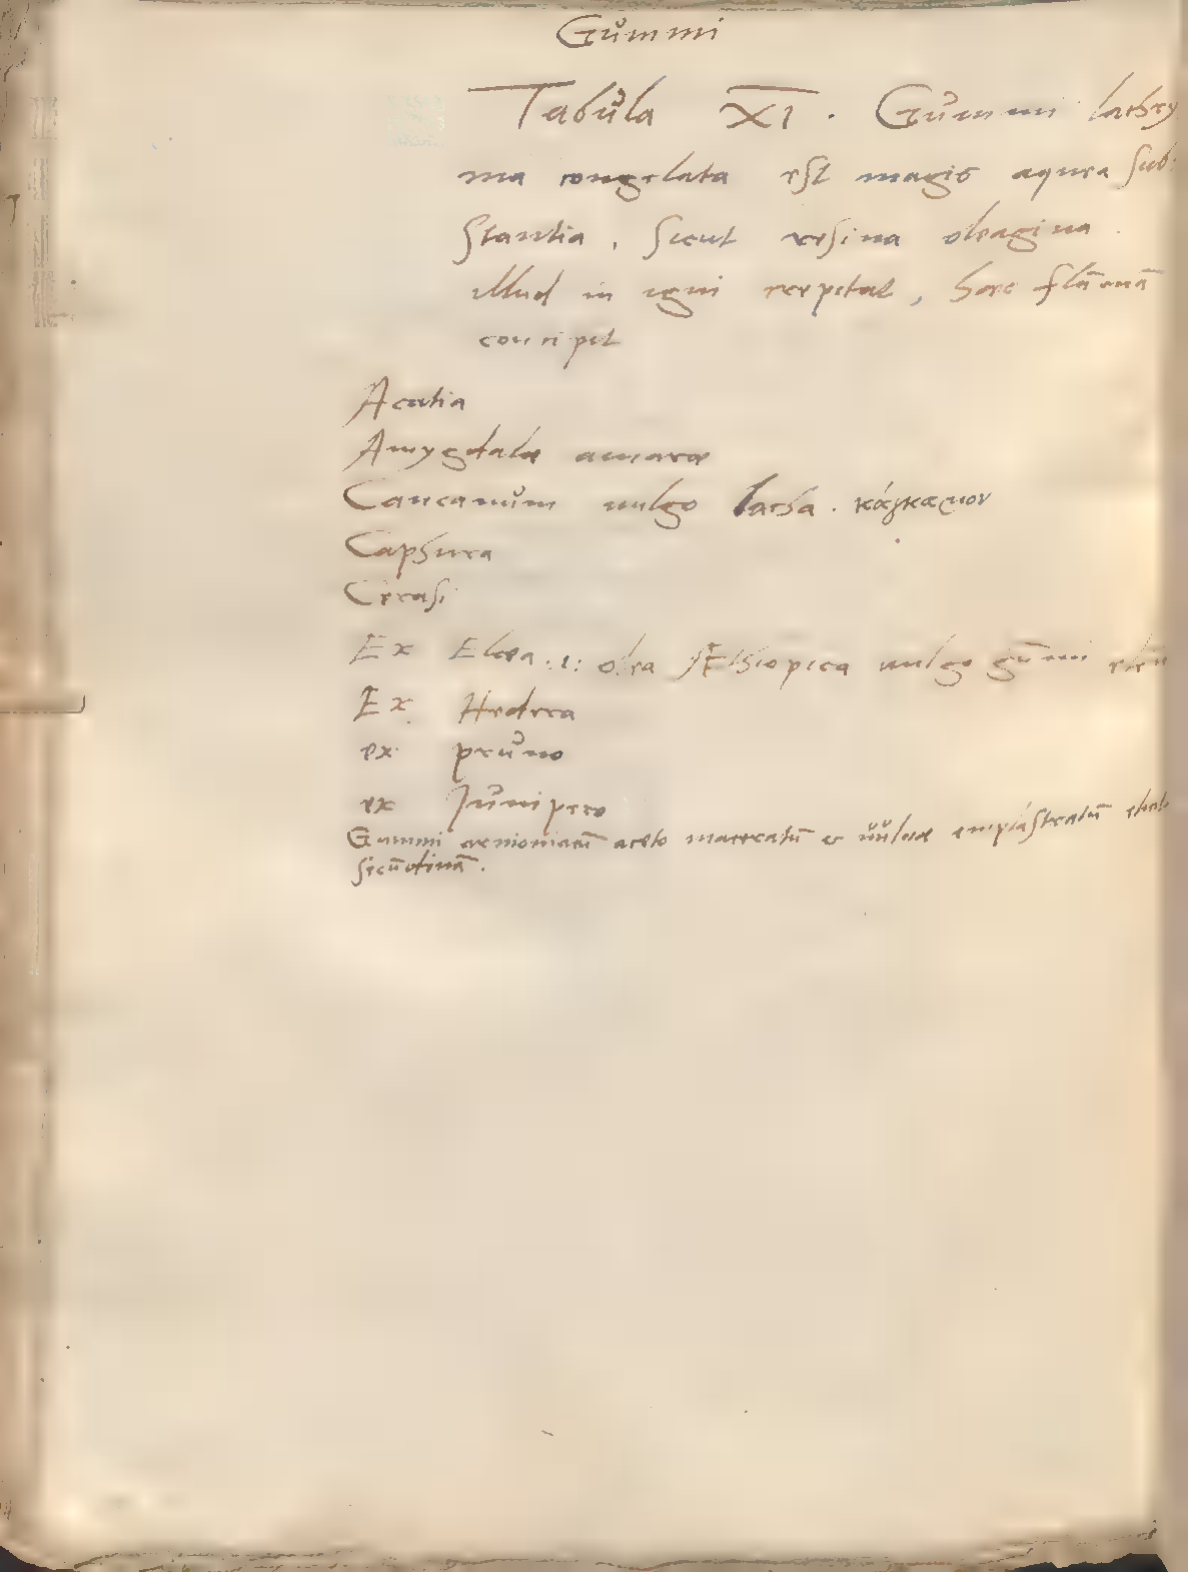 Gummi
Tabula XI. Gummi lachry
ma congelata est magis aquea sub
stantia, sicut resina oleagina.
illud in igni crepitat, haec flāmā
concipit
Acatia
Amygdalae amarae
Cancamum uulgo lacha. κάγκαμον
Caphura
Cerasi
Ex Elaea .i: olea Æthiopica uulgo gūmi elēn
Ex Hedera
ex pruno
ex Junipero
Gummi armoniacū aceto maceratū et uuluae emplastratū
secūdinā.